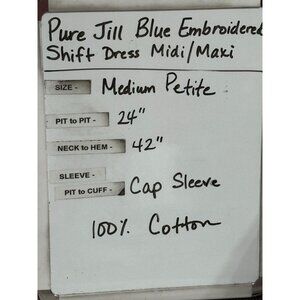 Pure Jill Blue Embroidered
Shift Dress Midi/Maxi
SIZE - Medium Petite
PIT to PIT - 24"
NECK to HEM - 42"
SLEEVE -
PIT to CUFF - Cap Sleeve
100% Cotton